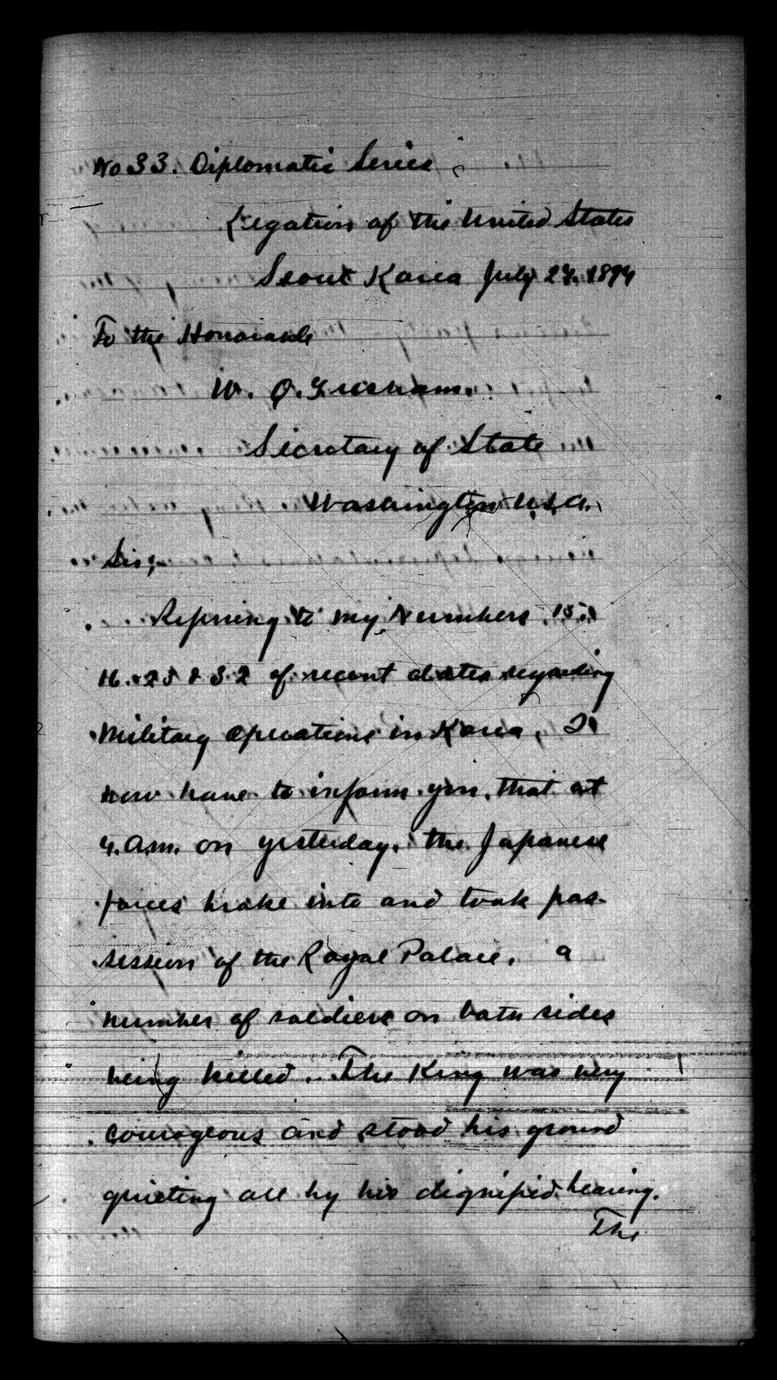 No 33. Diplomatic Series
Legation of the United States
Seoul Korea July 24. 1894
To the Honorable
W. Q. Gresham.
Secretary of State
Washington U.S.A.
Sir;
Refering to my Numbers 15.
16. 25 & 32 of recent dates regarding
Military Operations in Korea, I
now have to inform you, that at
4. a.m. on yesterday, the Japanese
forces broke into and took pos-
session of the Royal Palace. a
number of soldiers on both sides
being killed. The King was very
courageous and stood his ground
quieting all by his dignified bearing.
The